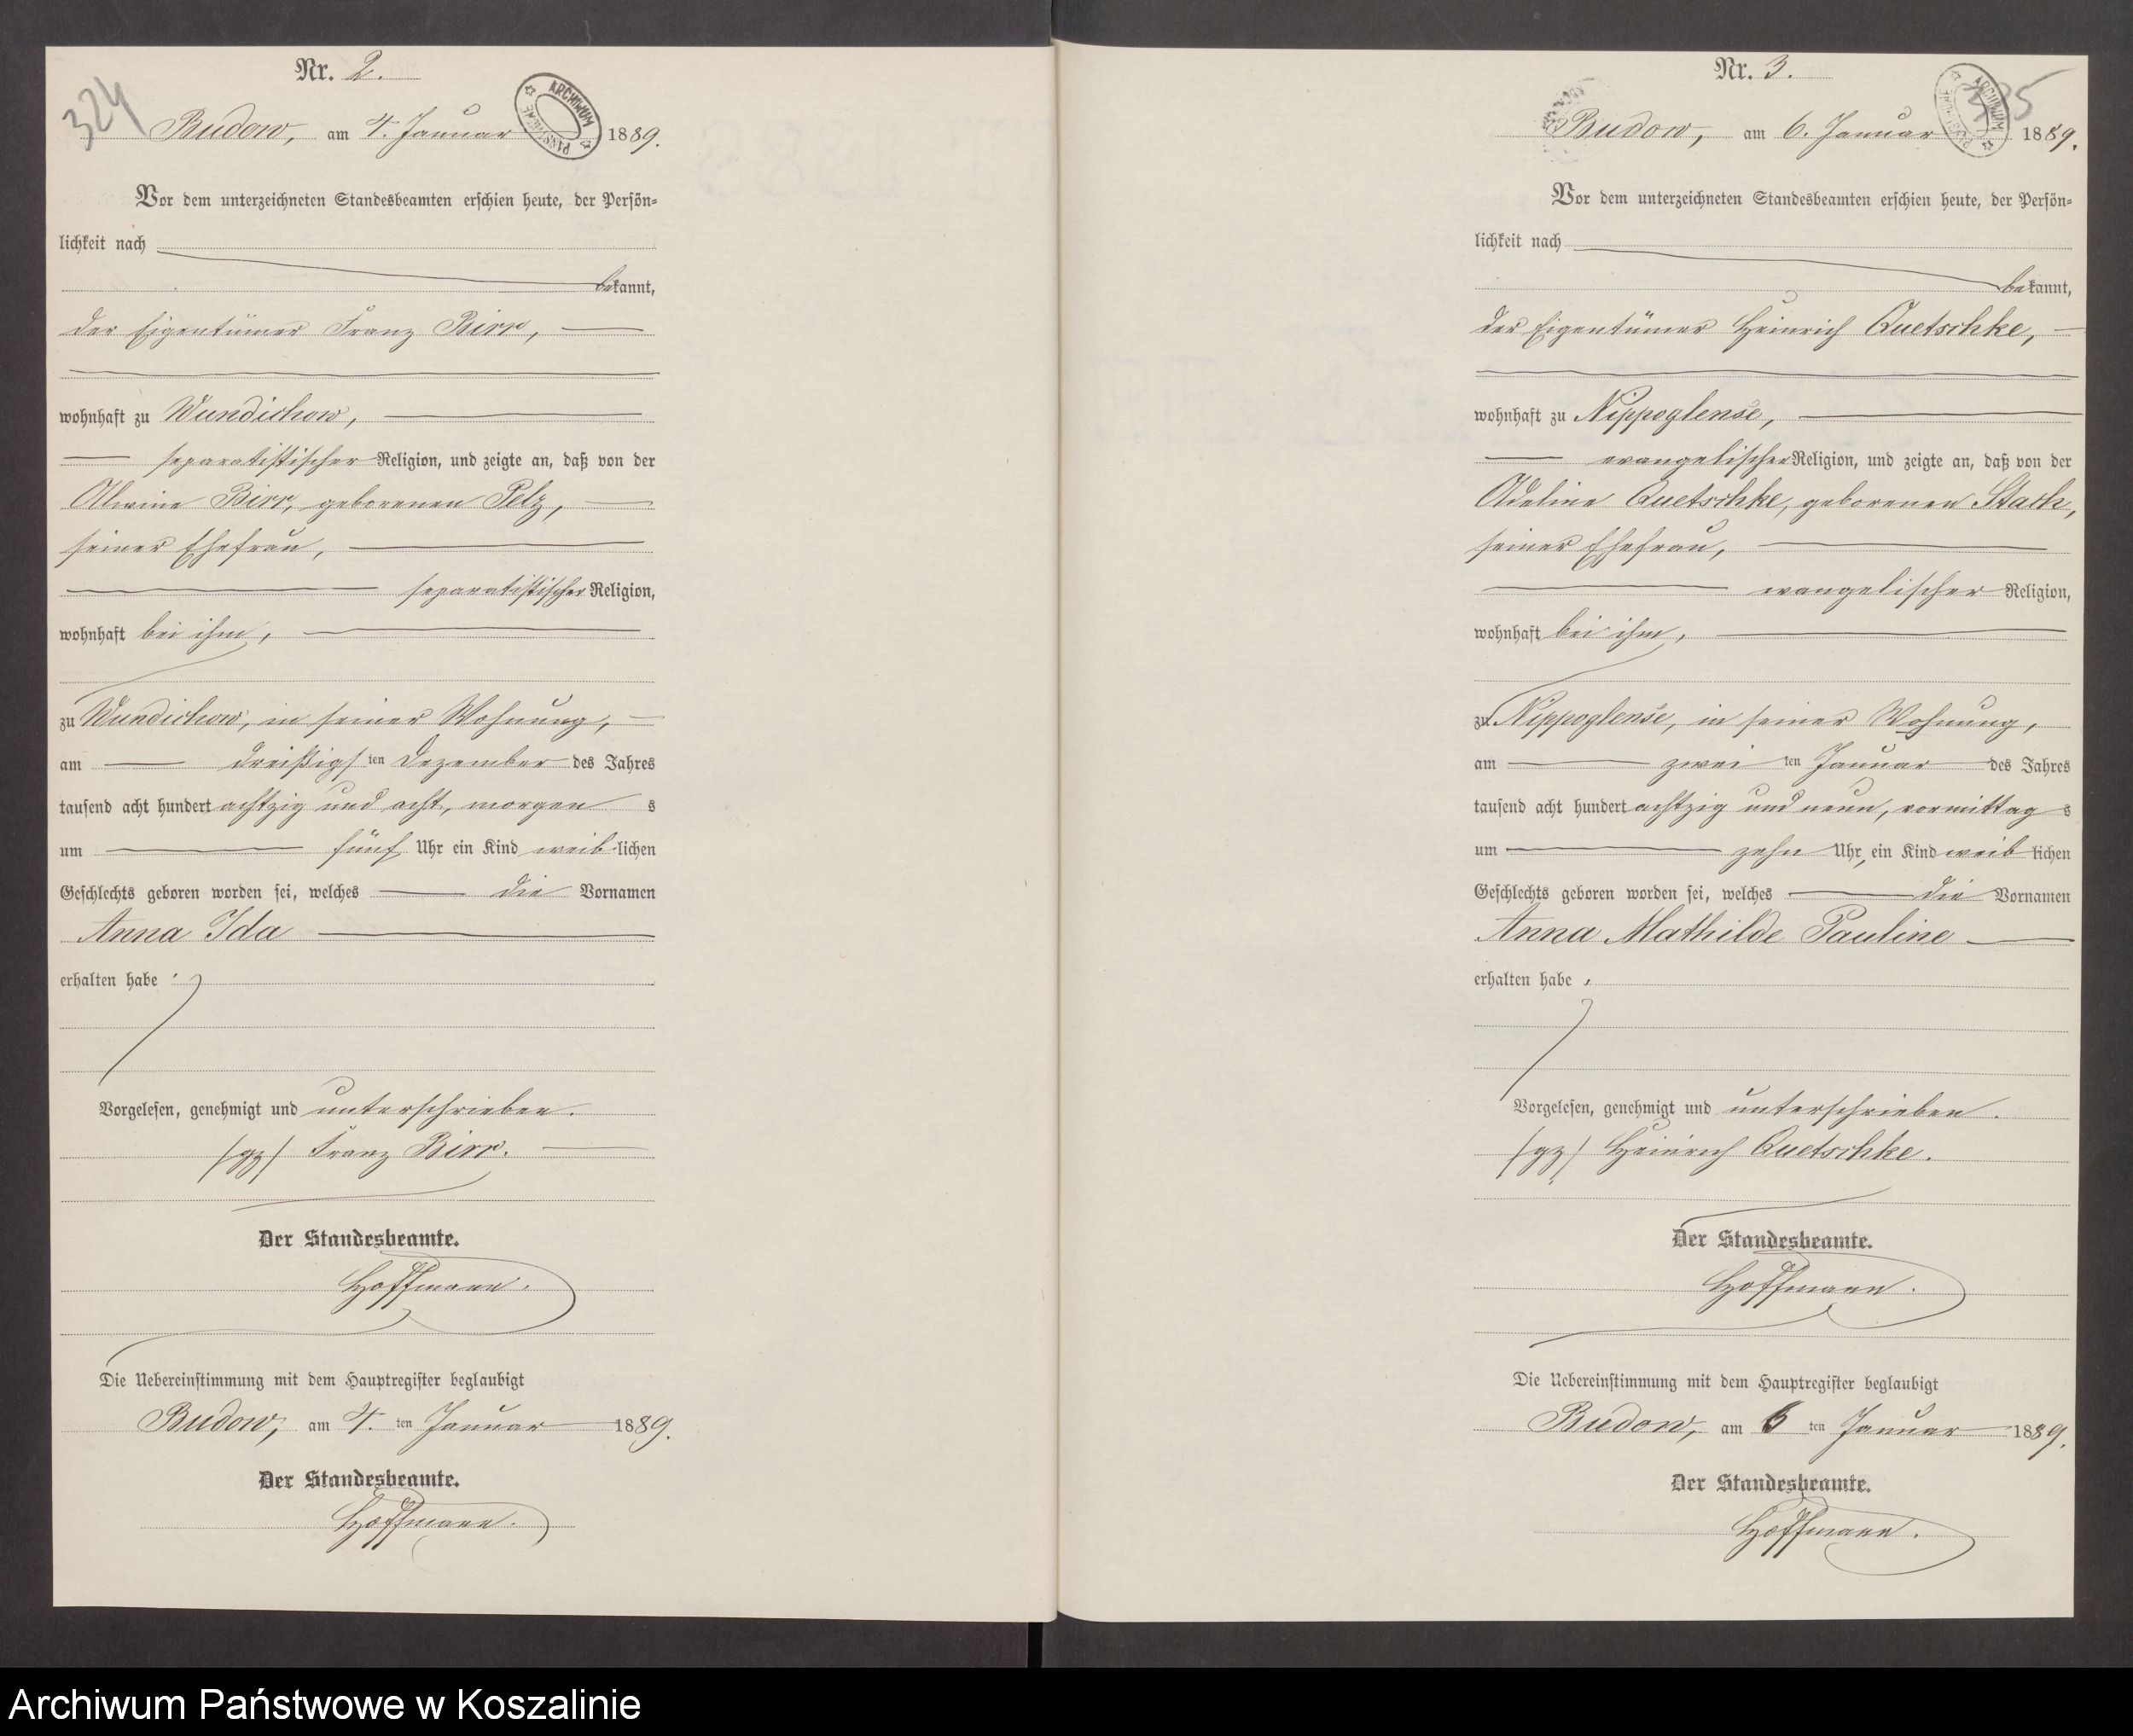 Nr. 2.
324
ARCHIWUM PAŃSTWOWE
Budow, am 4. Januar 1889.
Vor dem unterzeichneten Standesbeamten erschien heute, der Persön-
lichkeit nach
bekannt,
der Eigentümer Franz Birr,
wohnhaft zu Wundichow,
separatistischer Religion, und zeigte an, daß von der
Alwine Birr, geborenen Pelz,
seiner Ehefrau,
separatistischer Religion,
wohnhaft bei ihm,
zu Wundichow, in seiner Wohnung,
am dreißigsten Dezember des Jahres
tausend acht hundert achtzig und acht, morgens
um fünf Uhr ein Kind weiblichen
Geschlechts geboren worden sei, welches die Vornamen
Anna Ida
erhalten habe.
Vorgelesen, genehmigt und unterschrieben.
(gz) Franz Birr.
Der Standesbeamte.
Hoffmann.
Die Uebereinstimmung mit dem Hauptregister beglaubigt
Budow, am 4. ten Januar 1889.
Der Standesbeamte.
Hoffmann.
Nr. 3.
ARCHIWUM PAŃSTWOWE
Budow, am 6. Januar 1889.
Vor dem unterzeichneten Standesbeamten erschien heute, der Persön-
lichkeit nach
bekannt,
der Eigentümer Heinrich Quetschke,
wohnhaft zu Nippoglense,
evangelischer Religion, und zeigte an, daß von der
Adeline Quetschke, geborenen Stach,
seiner Ehefrau,
evangelischer Religion,
wohnhaft bei ihm,
zu Nippoglense, in seiner Wohnung,
am zweiten Januar des Jahres
tausend acht hundert achtzig und neun, vormittags
um zehn Uhr, ein Kind weiblichen
Geschlechts geboren worden sei, welches die Vornamen
Anna Mathilde Pauline
erhalten habe.
Vorgelesen, genehmigt und unterschrieben.
(gz) Heinrich Quetschke.
Der Standesbeamte.
Hoffmann.
Die Uebereinstimmung mit dem Hauptregister beglaubigt
Budow, am 6 ten Januar 1889.
Der Standesbeamte.
Hoffmann.
Archiwum Państwowe w Koszalinie